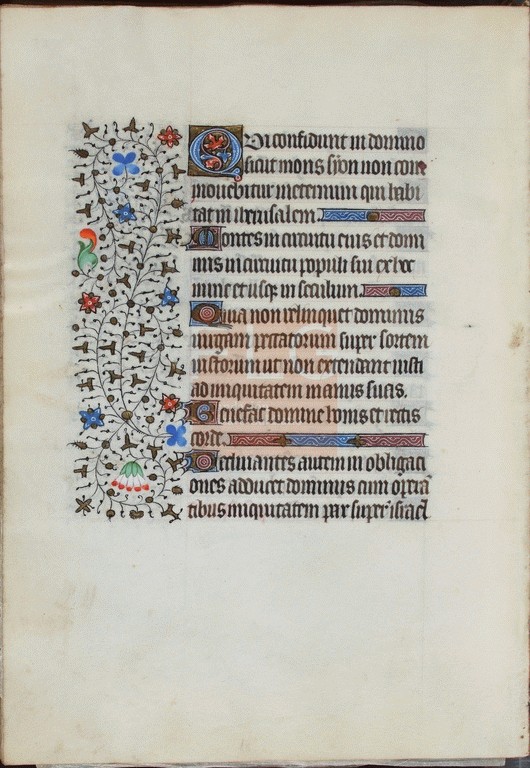 Qui confidunt in domino
sicut mons syon non com
movebitur in eternum qui habi
tat in iherusalem.
Montes in circuitu eius et domi
nus in circuitu populi sui ex hoc
nunc et usq in seculum.
Quia non relinquet dominus
virgam peccatorum super sortem
iustorum ut non extendant iusti
ad iniquitatem manus suas.
Benefac domine bonis et rectis
corde.
Declinantes autem in obligaci
ones adducet dominus cum opera
tibus iniquitatem pax super israel